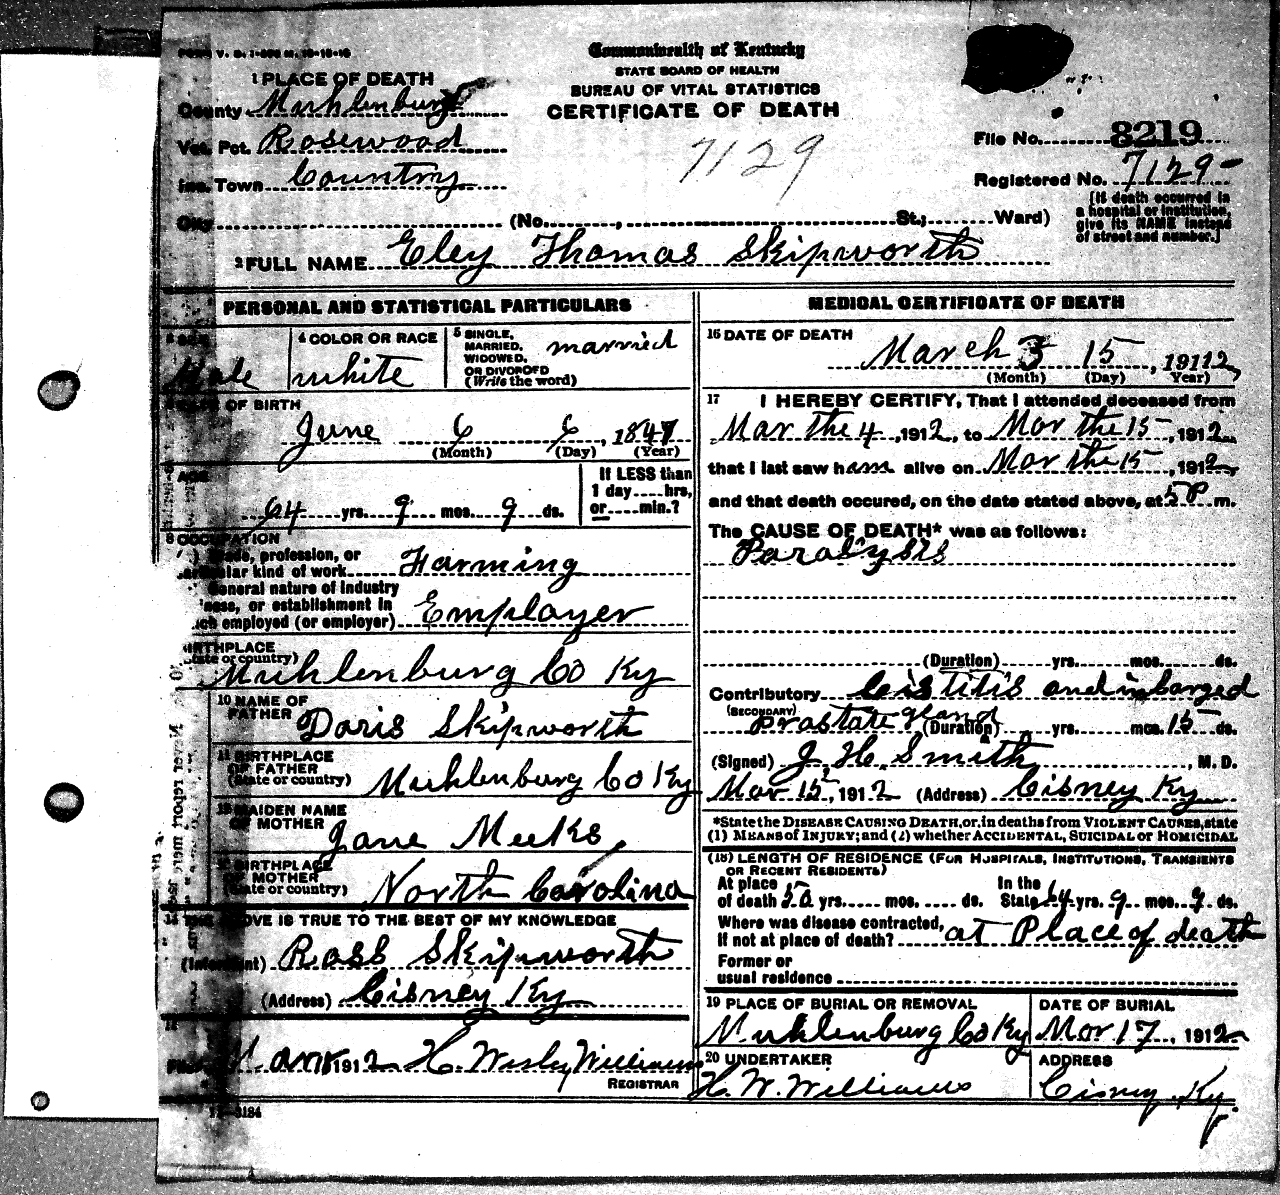 FORM V. S. 1-50M M. 10-10-10
Commonwealth of Kentucky
STATE BOARD OF HEALTH
BUREAU OF VITAL STATISTICS
CERTIFICATE OF DEATH
1 PLACE OF DEATH
County Muhlenburg
Vot. Pct. Rosewood
Inc. Town Country
City (No. , St.; Ward)
7129
File No. 8219
Registered No. 7129-
[If death occurred in
a hospital or institution,
give its NAME instead
of street and number.]
2 FULL NAME Eley Thomas Skipworth
PERSONAL AND STATISTICAL PARTICULARS
Male
4 COLOR OR RACE
white
5 SINGLE,
MARRIED,
WIDOWED,
OR DIVORCED
(Write the word)
married
DATE OF BIRTH
June 6 6, 1847
(Month) (Day) (Year)
AGE
64 yrs. 9 mos. 9 ds.
If LESS than
1 day hrs,
or min.?
8 OCCUPATION
Trade, profession, or
particular kind of work Farming
General nature of industry
business, or establishment in
which employed (or employer) Employer
BIRTHPLACE
(State or country)
Muhlenburg Co Ky
10 NAME OF
FATHER
Doris Skipworth
11 BIRTHPLACE
OF FATHER
(State or country) Muhlenburg Co Ky
12 MAIDEN NAME
OF MOTHER
Jane Meeks,
BIRTHPLACE
OF MOTHER
(State or country) North Carolina
THE ABOVE IS TRUE TO THE BEST OF MY KNOWLEDGE
(Informant) Ross Skipworth
(Address) Cisney Ky
Filed Mar 1912 H. Wesley Williams
REGISTRAR
11-3184
MEDICAL CERTIFICATE OF DEATH
16 DATE OF DEATH
March 3 15, 191 12,
(Month) (Day) Year)
17 I HEREBY CERTIFY, That I attended deceased from
Mar the 4, 1912, to Mar the 15, 1912
that I last saw ham alive on Mar the 15, 1912,
and that death occured, on the date stated above, at 5 P m.
The CAUSE OF DEATH* was as follows:
Paralysis
(Duration) yrs. mos. ds.
Contributory Cistitis and inlarged
(SECONDARY) prostate gland (Duration) yrs. mos. 15 ds.
(Signed) J. H. Smith, M. D.
Mar 15, 1912 (Address) Cisney Ky
*State the DISEASE CAUSING DEATH, or, in deaths from VIOLENT CAUSES, state
(1) MEANS of INJURY; and (2) whether ACCIDENTAL, SUICIDAL or HOMICIDAL
(18) LENGTH OF RESIDENCE (FOR HOSPITALS, INSTITUTIONS, TRANSIENTS
OR RECENT RESIDENTS)
At place
of death 50 yrs. mos. ds.
In the
State 64 yrs. 9 mos. 9 ds.
Where was disease contracted,
If not at place of death? at Place of death
Former or
usual residence
19 PLACE OF BURIAL OR REMOVAL
Muhlenburg Co Ky
DATE OF BURIAL
Mar 17, 1912
20 UNDERTAKER
H. W. Williams
ADDRESS
Cisney Ky.